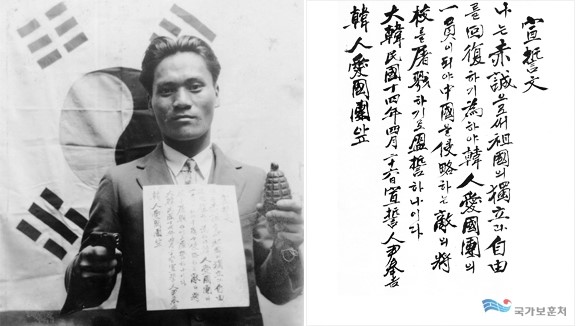 宣誓文
나는赤誠으로써祖國의獨立과自由
를回復하기爲하야韓人愛國團의
一員이되야中國을侵略하는敵의將
校를屠戮하기로盟誓하나이다
大韓民國十四年四月二十六日宣誓人尹奉吉
韓人愛國團앞
韓人愛國團앞
국가보훈처